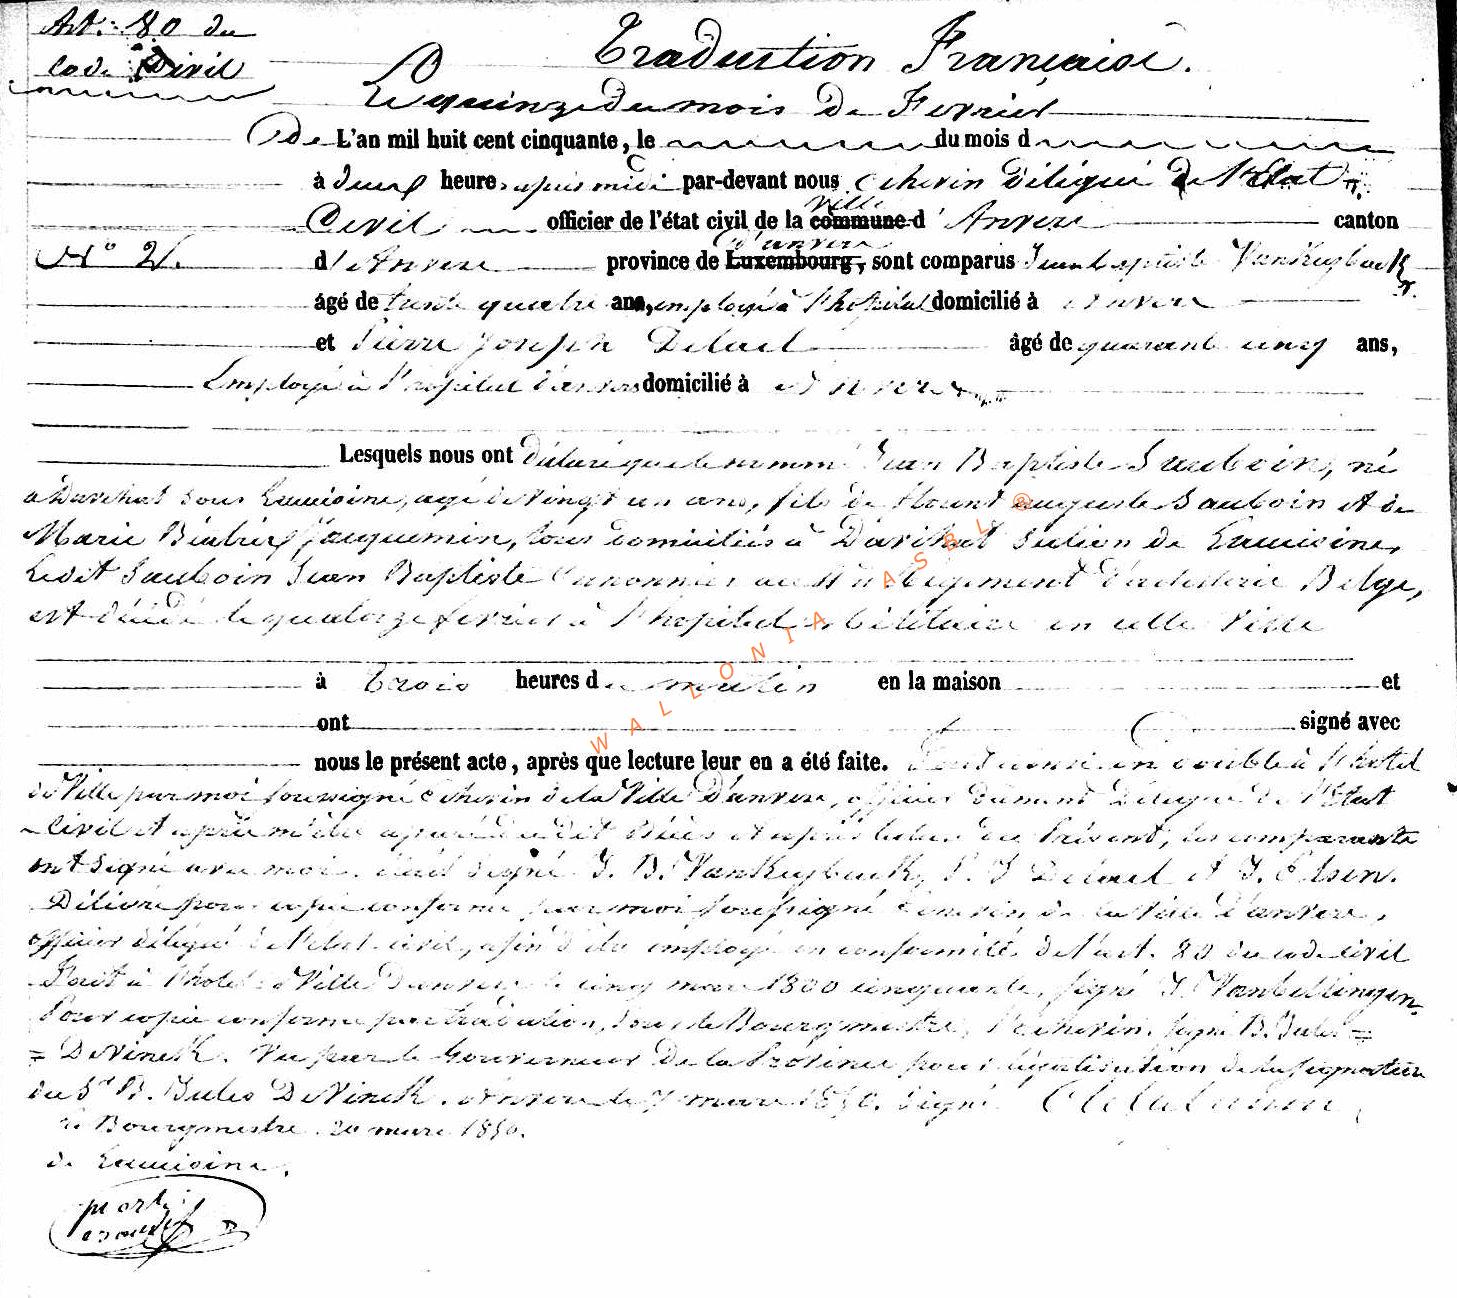 Art: 80 du
Code Civil
Traduction Française.
Le quinze du mois de Fevrier
De L'an mil huit cent cinquante, le du mois d
à deux heures après midi par-devant nous Echevin Délégué de l'Etat
Civil officier de l'état civil de la commune ville d'Anvers canton
N° 2. d'Anvers province de Luxembourg, d'anvers sont comparus Jean baptiste VanKuybuck
âgé de trente quatre ans, employé à l'hopital domicilié à Anvers
et Pierre Joseph Delael âgé de quarante cinq ans,
Employé à l'hopital d'anvers domicilié à Anvers
Lesquels nous ont déclaré que le nommé Jean Baptiste Sauboin, né
à Sous Lacuisine, agé de vingt un ans, fils de auguste Sauboin et de
Marie Béatrix Jacquemin, tous domiciliés à section de Lacuisine,
Ledit Sauboin Jean Baptiste Canonnier au Régiment d'artillerie Belge,
est décédé le quatorze fevrier à l'hopital Militaire en cette Ville
à Trois heures du matin en la maison et
ont signé avec
nous le présent acte, après que lecture leur en a été faite. en double à l'hotel
de Ville par moi soussigné Echevin de la Ville D'anvers, officier dument Délégué de l'Etat
Civil et après m'être dudit Décès et après lecture du Présent, les comparants
ont signé avec moi. était signé J. B. VanKuybuck, P. J Delael et J. Elsen.
Délivré pour copie conforme par moi soussigné Echevin de la Ville d'anvers,
officier délégué de l'etat civil, afin d'être employé en conformité de l'art. 80 du code civil
Fait à l'hotel de Ville D'anvers le cinq mars 1800 cinquante, signé J. VanBellingen
Pour copie conforme par traduction, Sous le Bourgmestre, l'echevin. signé B. Jules =
= DeVinck. Vu par le Gouverneur De la Province pour légalisation de la signature
du Sr B. Jules DeVinck. Anvers le 7 mars 1850. Signé
le Bourgmestre 20 mars 1850.
de Lacuisine.
WALLONIA ASBL ®